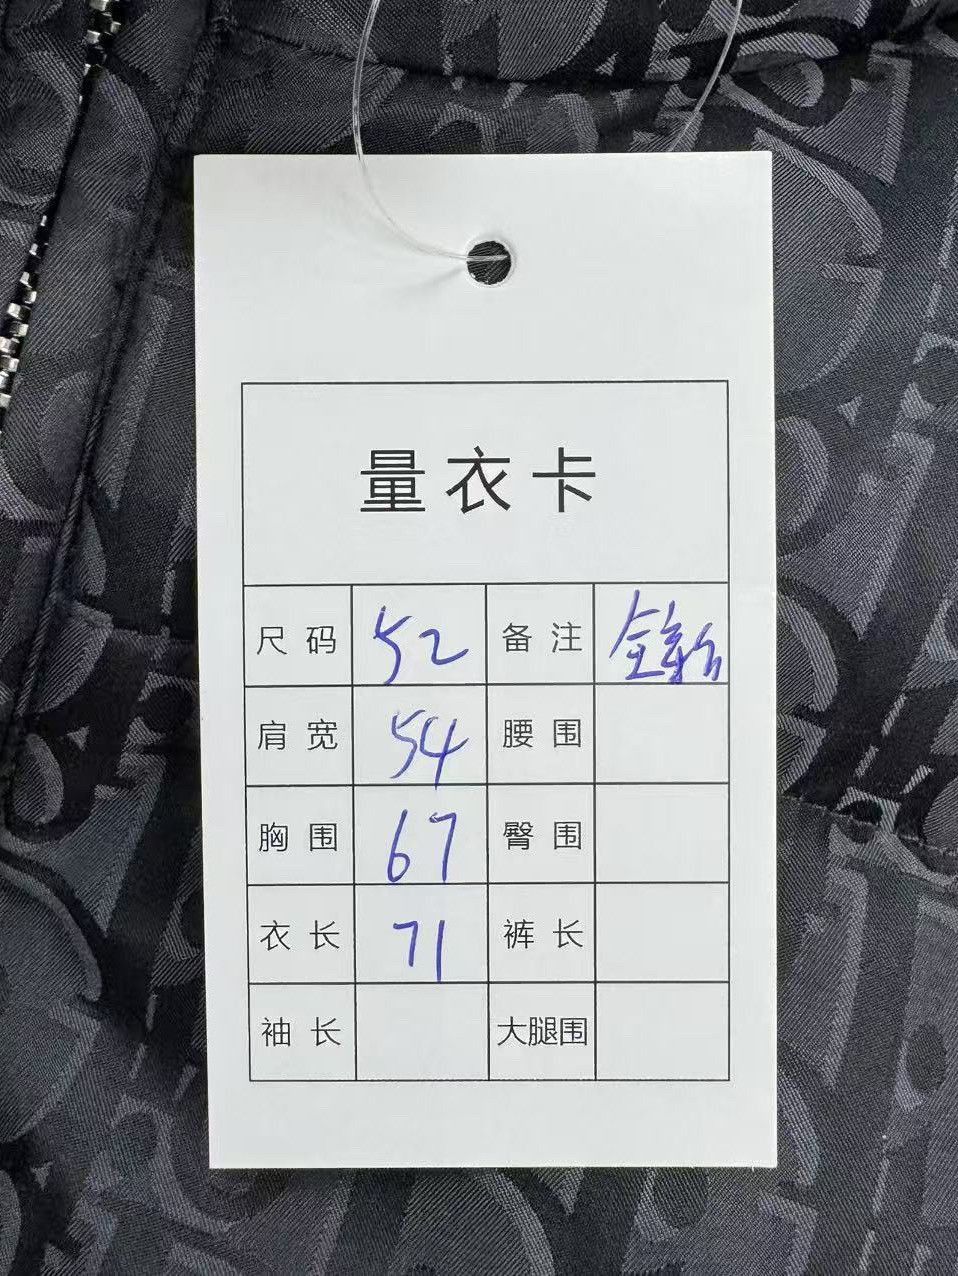 量衣卡
尺码 52 备注 全新
肩宽 54 腰围
胸围 67 臀围
衣长 71 裤长
袖长 大腿围